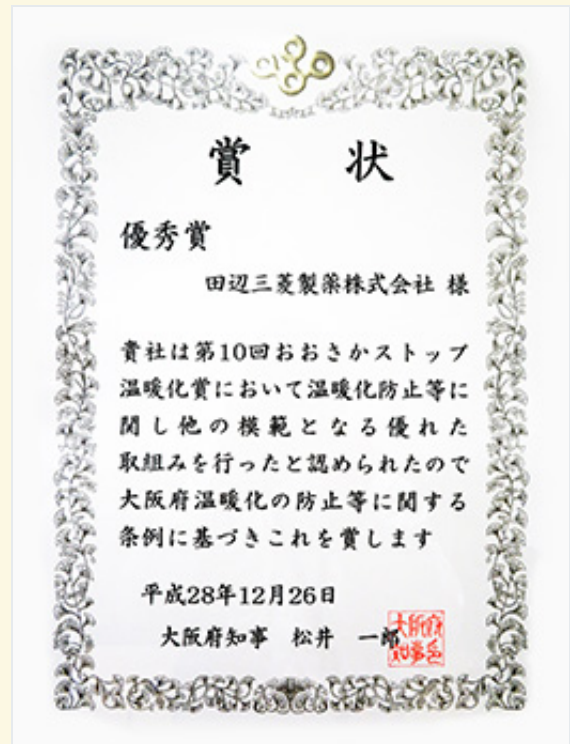 賞 状
優秀賞
田辺三菱製薬株式会社 様
貴社は第10回おおさかストップ
温暖化賞において温暖化防止等に
関し他の模範となる優れた
取組みを行ったと認められたので
大阪府温暖化の防止等に関する
条例に基づきこれを賞します
平成28年12月26日
大阪府知事 松井 一郎